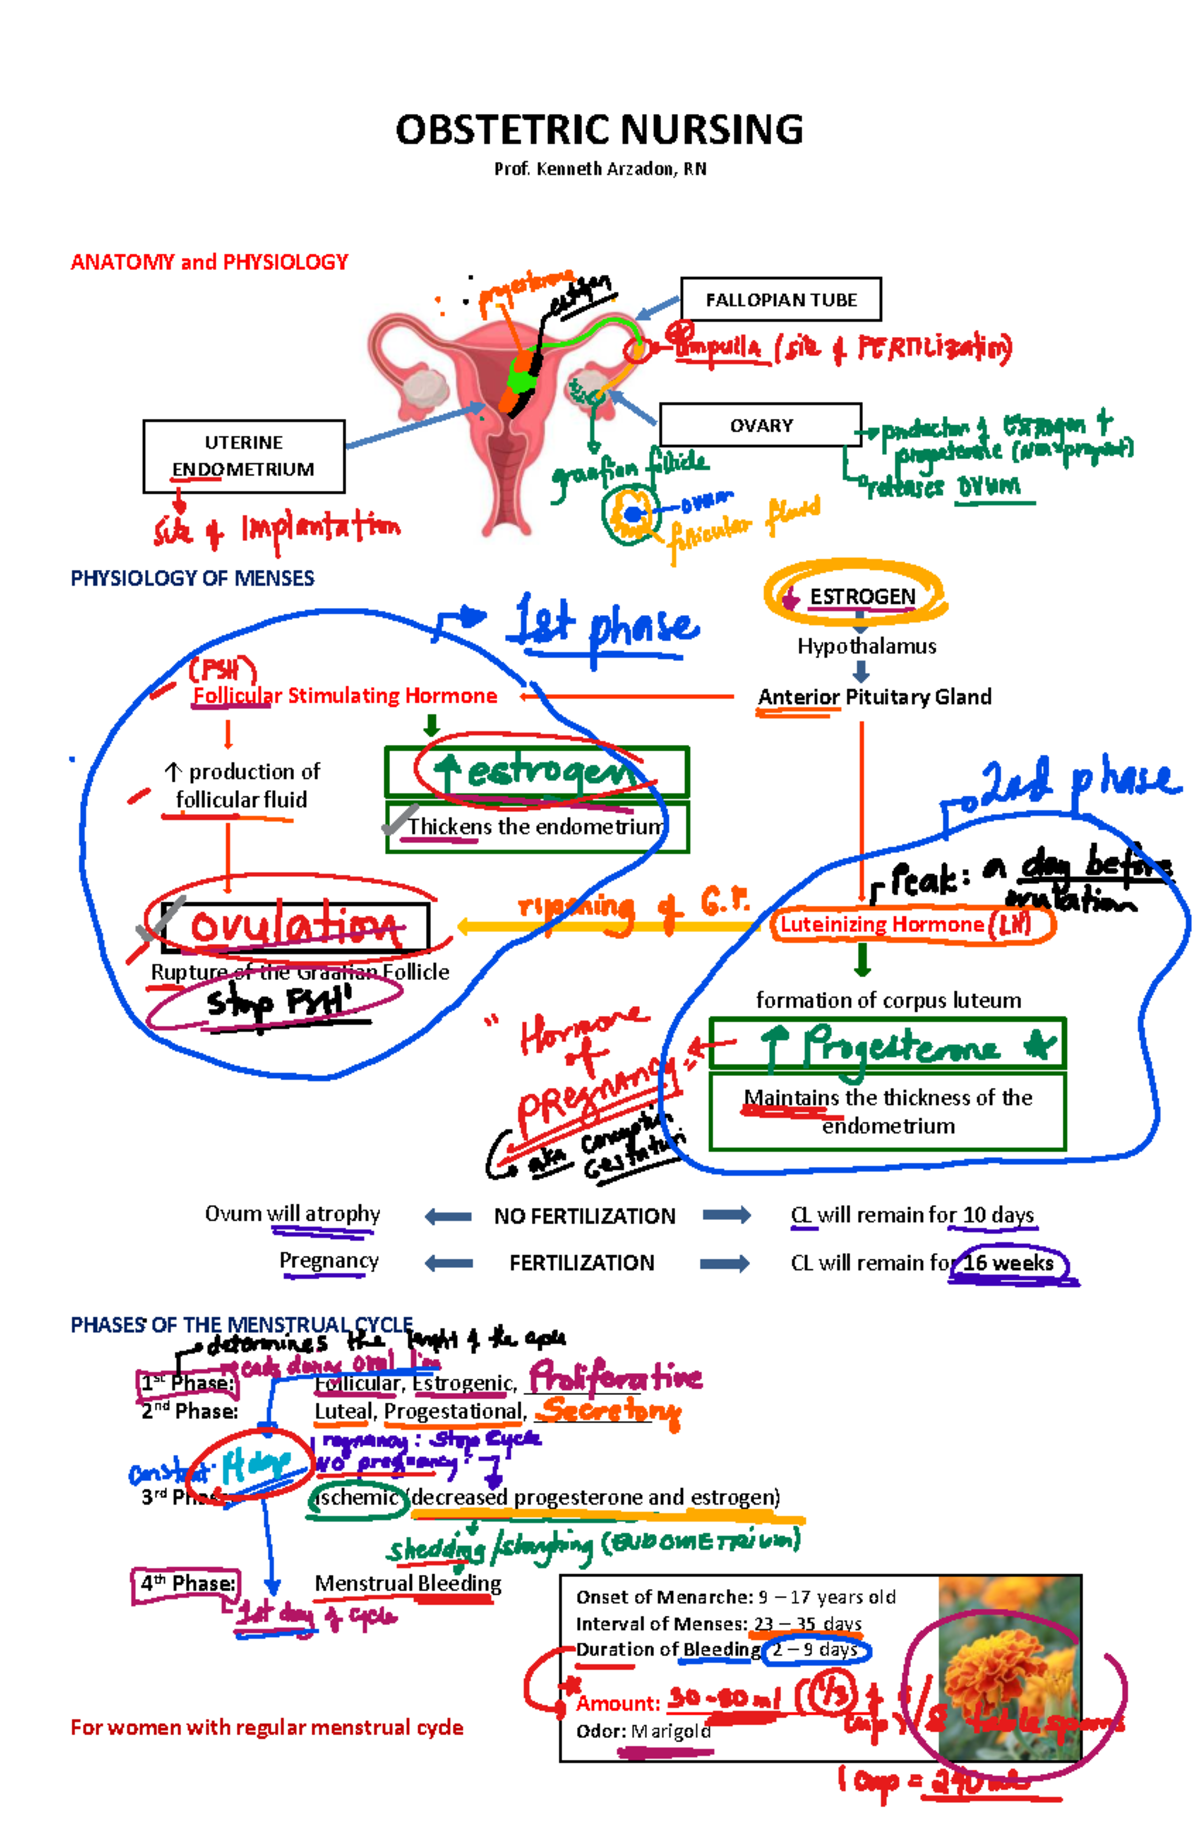 OBSTETRIC NURSING
Prof. Kenneth Arzadon, RN
ANATOMY and PHYSIOLOGY
progesterone
FALLOPIAN TUBE
ampulla (site of FERTILIZATION)
OVARY
production of Estrogen +
progesterone (non pregnant)
releases OVUM
UTERINE
ENDOMETRIUM
site of Implantation
graafian follicle
ovum
follicular fluid
PHYSIOLOGY OF MENSES
↓ ESTROGEN
Hypothalamus
1st phase
(FSH)
Follicular Stimulating Hormone
Anterior Pituitary Gland
↑ estrogen
↑ production of
follicular fluid
Thickens the endometrium
2nd phase
Peak: a day before
ovulation
ripening of G.F.
Luteinizing Hormone (LH)
ovulation
Rupture of the Graafian Follicle
Stop FSH
formation of corpus luteum
↑ Progesterone ★
"Hormone
of
PREGNANCY"
aka
Gestation
Maintains the thickness of the
endometrium
Ovum will atrophy
NO FERTILIZATION
CL will remain for 10 days
Pregnancy
FERTILIZATION
CL will remain for 16 weeks
PHASES OF THE MENSTRUAL CYCLE
determines the lenght of the cycle
ends during
1st Phase:
Follicular, Estrogenic, Proliferative
2nd Phase:
Luteal, Progestational, Secretory
Pregnancy: Stop Cycle
NO pregnancy:
constant 14 days
3rd Phase:
Ischemic (decreased progesterone and estrogen)
shedding/sloughing (ENDOMETRIUM)
4th Phase:
Menstrual Bleeding
1st day of cycle
Onset of Menarche: 9 – 17 years old
Interval of Menses: 23 – 35 days
Duration of Bleeding: 2 – 9 days
Amount: 30-80 ml (1/3 of
cup) / 5 table spoons
Odor: Marigold
For women with regular menstrual cycle
1 cup = 240 mls